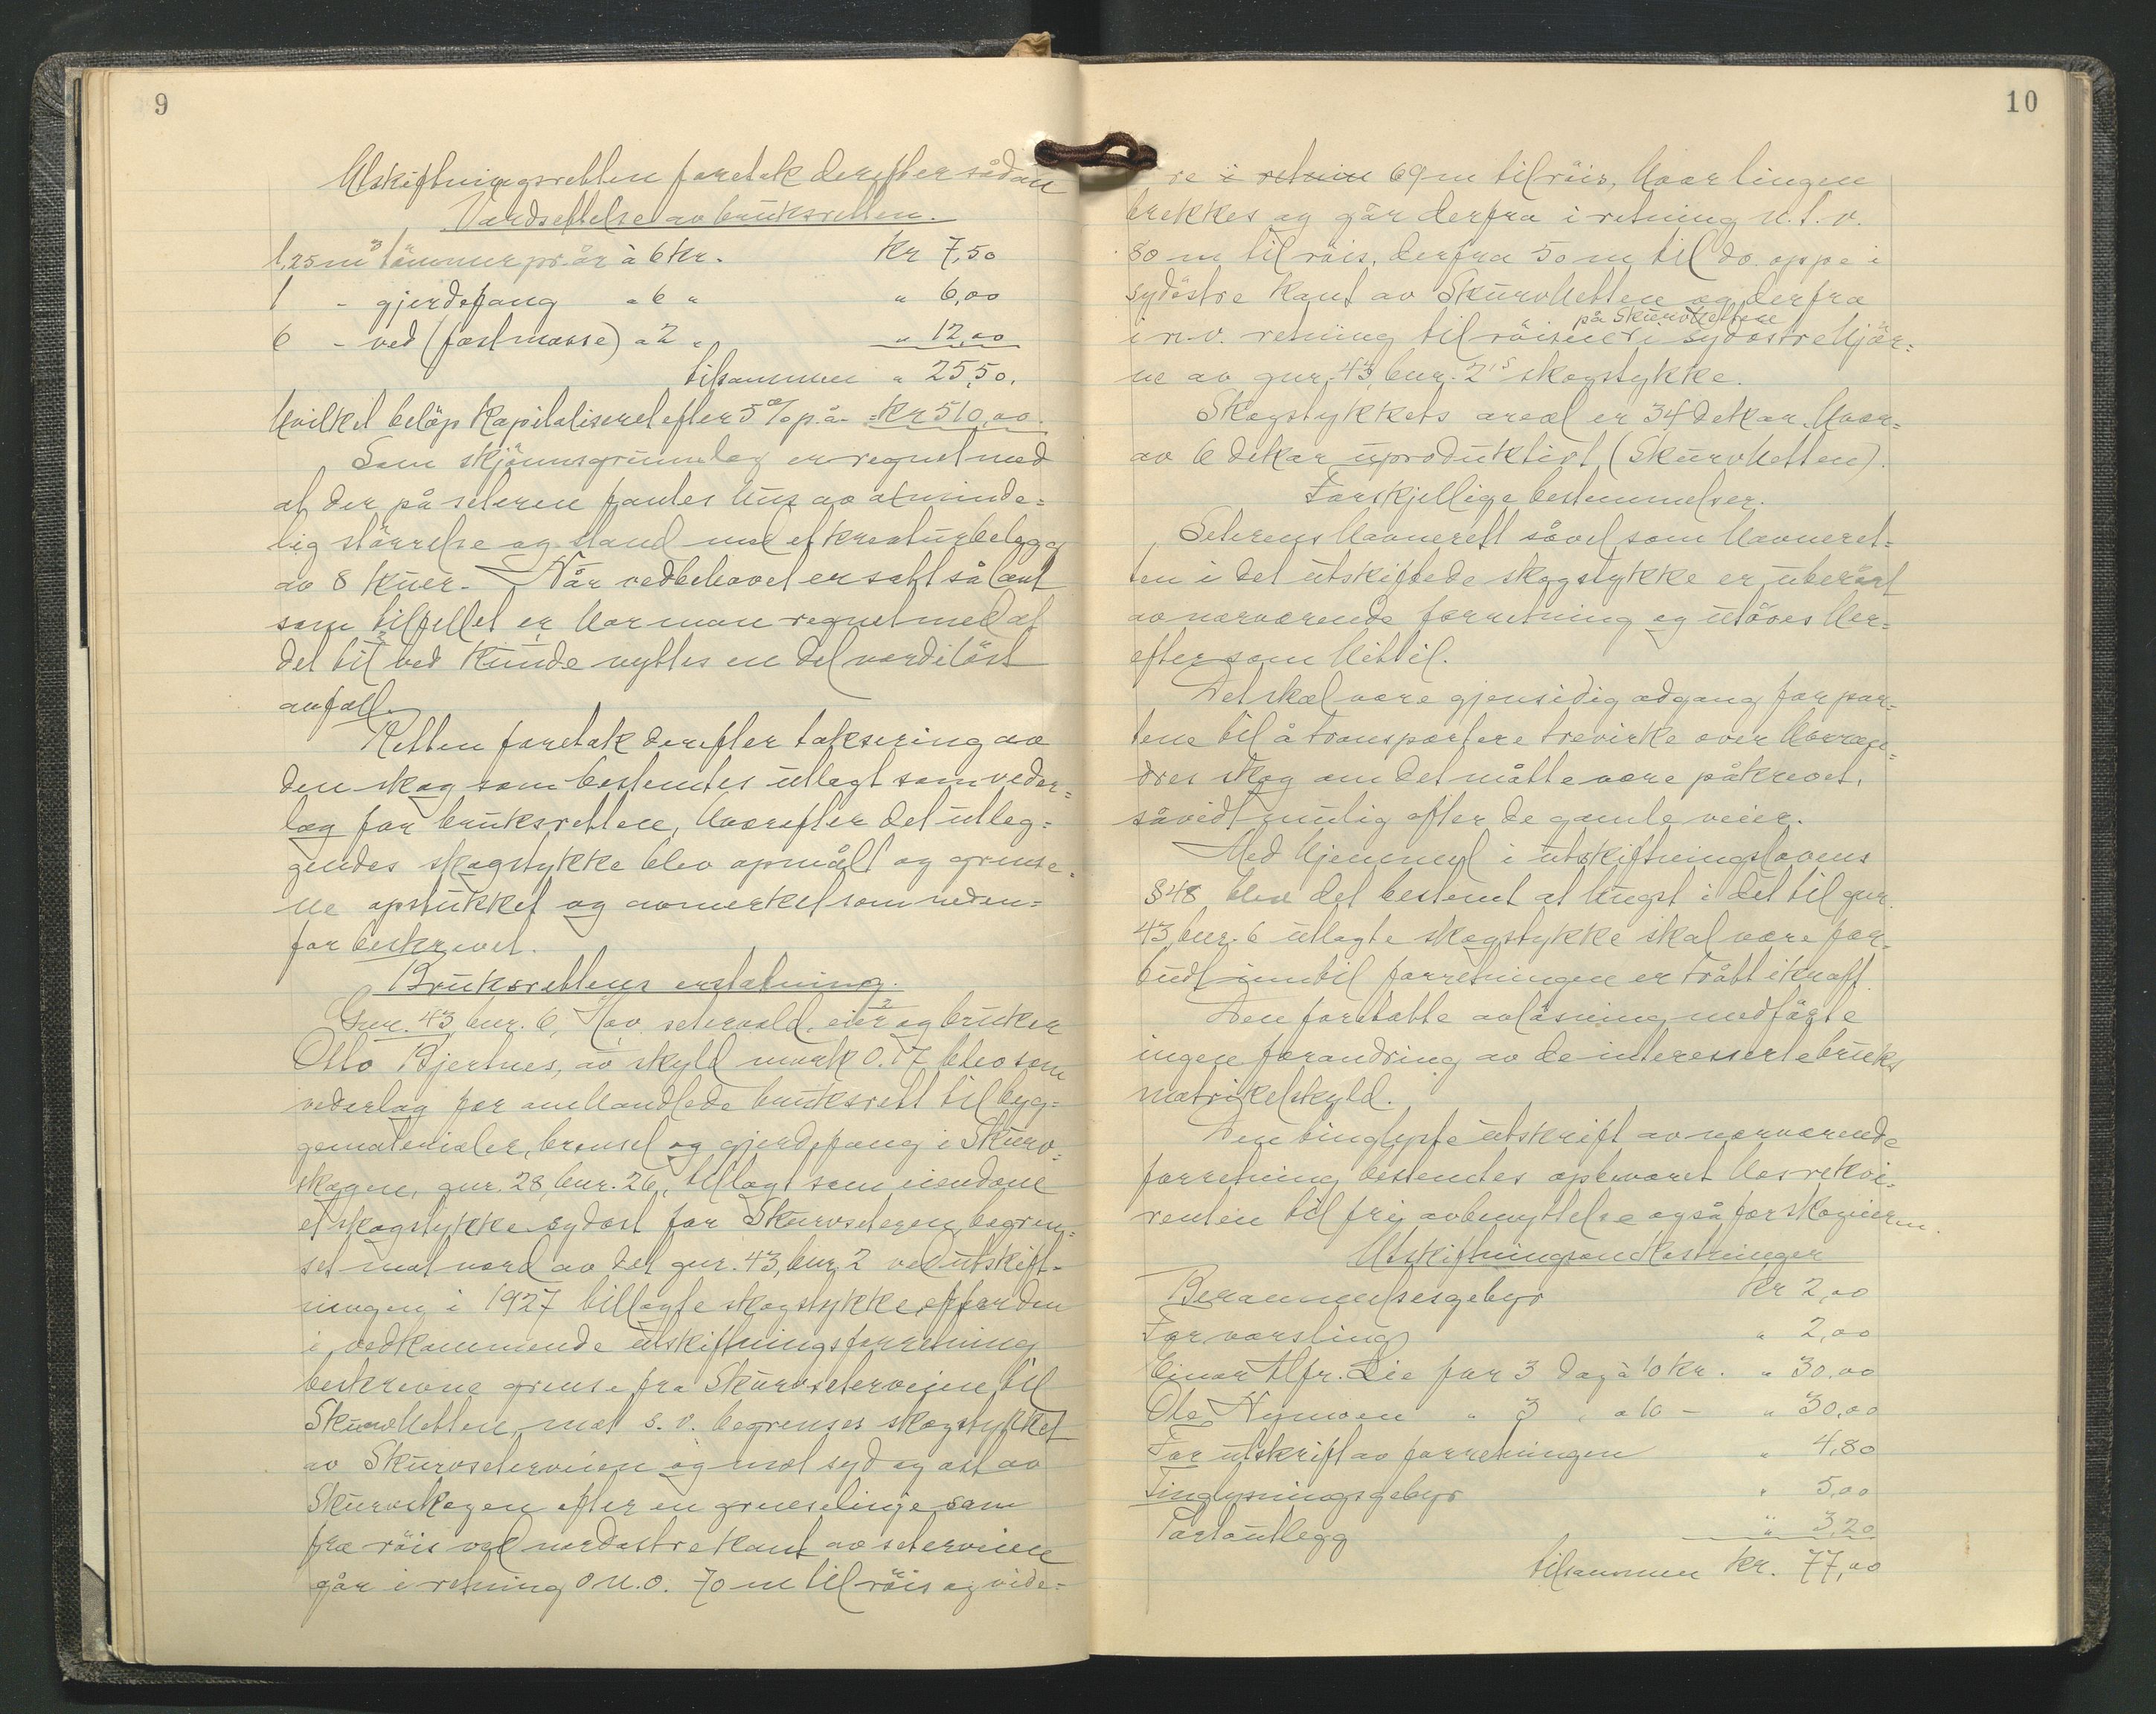 9
Utskiftningsretten foretok derefter sådan
Værdsettelse av bruksretten.
1,25 m³ tömmer pr. år à 6 kr. kr 7,50
1 - gjerdefang " 6 " " 6,00
6 - ved (fastmasse) " 2 " " 12,00
tilsammen " 25,50.
hvilket belöp kapitaliseret efter 5% p.å. = kr 510,00.
Som skjönnsgrunnlag er regnet med
at der på seteren fantes hus av alminde=
lig störrelse og stand med et kreaturbelegg
av 8 kuer. - Når vedbehovet er satt så lavt
som tilfellet er har man regnet med at
det til ved kunde nyttes en del verdilöst
avfall.
Retten foretok derefter taksering av
den skog som bestemtes utlagt som veder=
lag for bruksretten, hvorefter det utleg=
gendes skogstykke blev opmålt og grense=
ne opstukket og avmerket som neden=
for beskrevet.
Bruksrettens erstatning.
Gnr. 43, bnr. 6, Hov setervold, eier og bruker
Otto Bjertnes, av skyld mark 0.17 blev som
vederlag for omhandlede bruksrett til byg=
gematerialer, brensel og gjerdefang i Skurv=
skogen, gnr. 28, bnr. 26, tillagt som eiendom
et skogstykke sydöst for Skurvseteren, begren=
set mot nord av det gnr. 43, bnr. 2 ved utskift=
ningen i 1927 tillagte skogstykke efter den
i vedkommende utskiftningsforretning
beskrevne grense fra Skurvseterveien til
Skurvkletten, mot s.v. begrenses skogstykket
av Skurvseterveien og mot syd og öst av
Skurvskogen efter en grenselinje som
fra röis ved nordöstre kant av seterveien
går i retning ö.n.ö. 70 m til röis og vide=
10
re i retnin 69 m til röis, hvor lingen
brekkes og går derfra i retning n.t.v.
80 m til röis, derfra 50 m til do. oppe i
sydöstre kant av Skurvkletten og derfra
på Skurvkletten
i n.v. retning til röisen i sydöstre hjör=
ne av gnr. 43, bnr. 2's skogstykke.
Skogstykkets areal er 34 dekar, hvor=
av 6 dekar uproduktivt (Skurvkletten).
Forskjellige bestemmelser.
Seterens havnerett såvel som havneret=
ten i det utskiftede skogstykke er uberört
av nærværende forretning og utöves her=
efter som hittil.
Det skal være gjensidig adgang for par=
tene til å transportere trevirke over hveran=
dres skog om det måtte være påkrevet,
såvidt mulig efter de gamle veier.
Med hjemmel i utskiftningslovens
§ 48 blev det bestemt at hugst i det til gnr.
43, bnr. 6 utlagte skogstykke skal være for=
budt inntil forretningen er trått i kraft.
Den foretatte avlösning medförte
ingen forandring av de interesserte bruks
matrikelskyld.
Den tinglyste utskrift av nærværende
forretning bestemtes opbevaret hos rekvi=
renten til fri avbenyttelse også for skogeieren.
Utskiftningsomkostninger
Berammelsesgebyr kr 2,00
For varsling " 2,00
Einar Alfr. Lie for 3 dag à 10 kr. " 30,00
Ole Nymoen " 3 " à 10 - " 30,00
For utskrift av forretningen " 4,80
Tinglysningsgebyr " 5,00
Portoutlegg " 3,20
tilsammen kr. 77,00